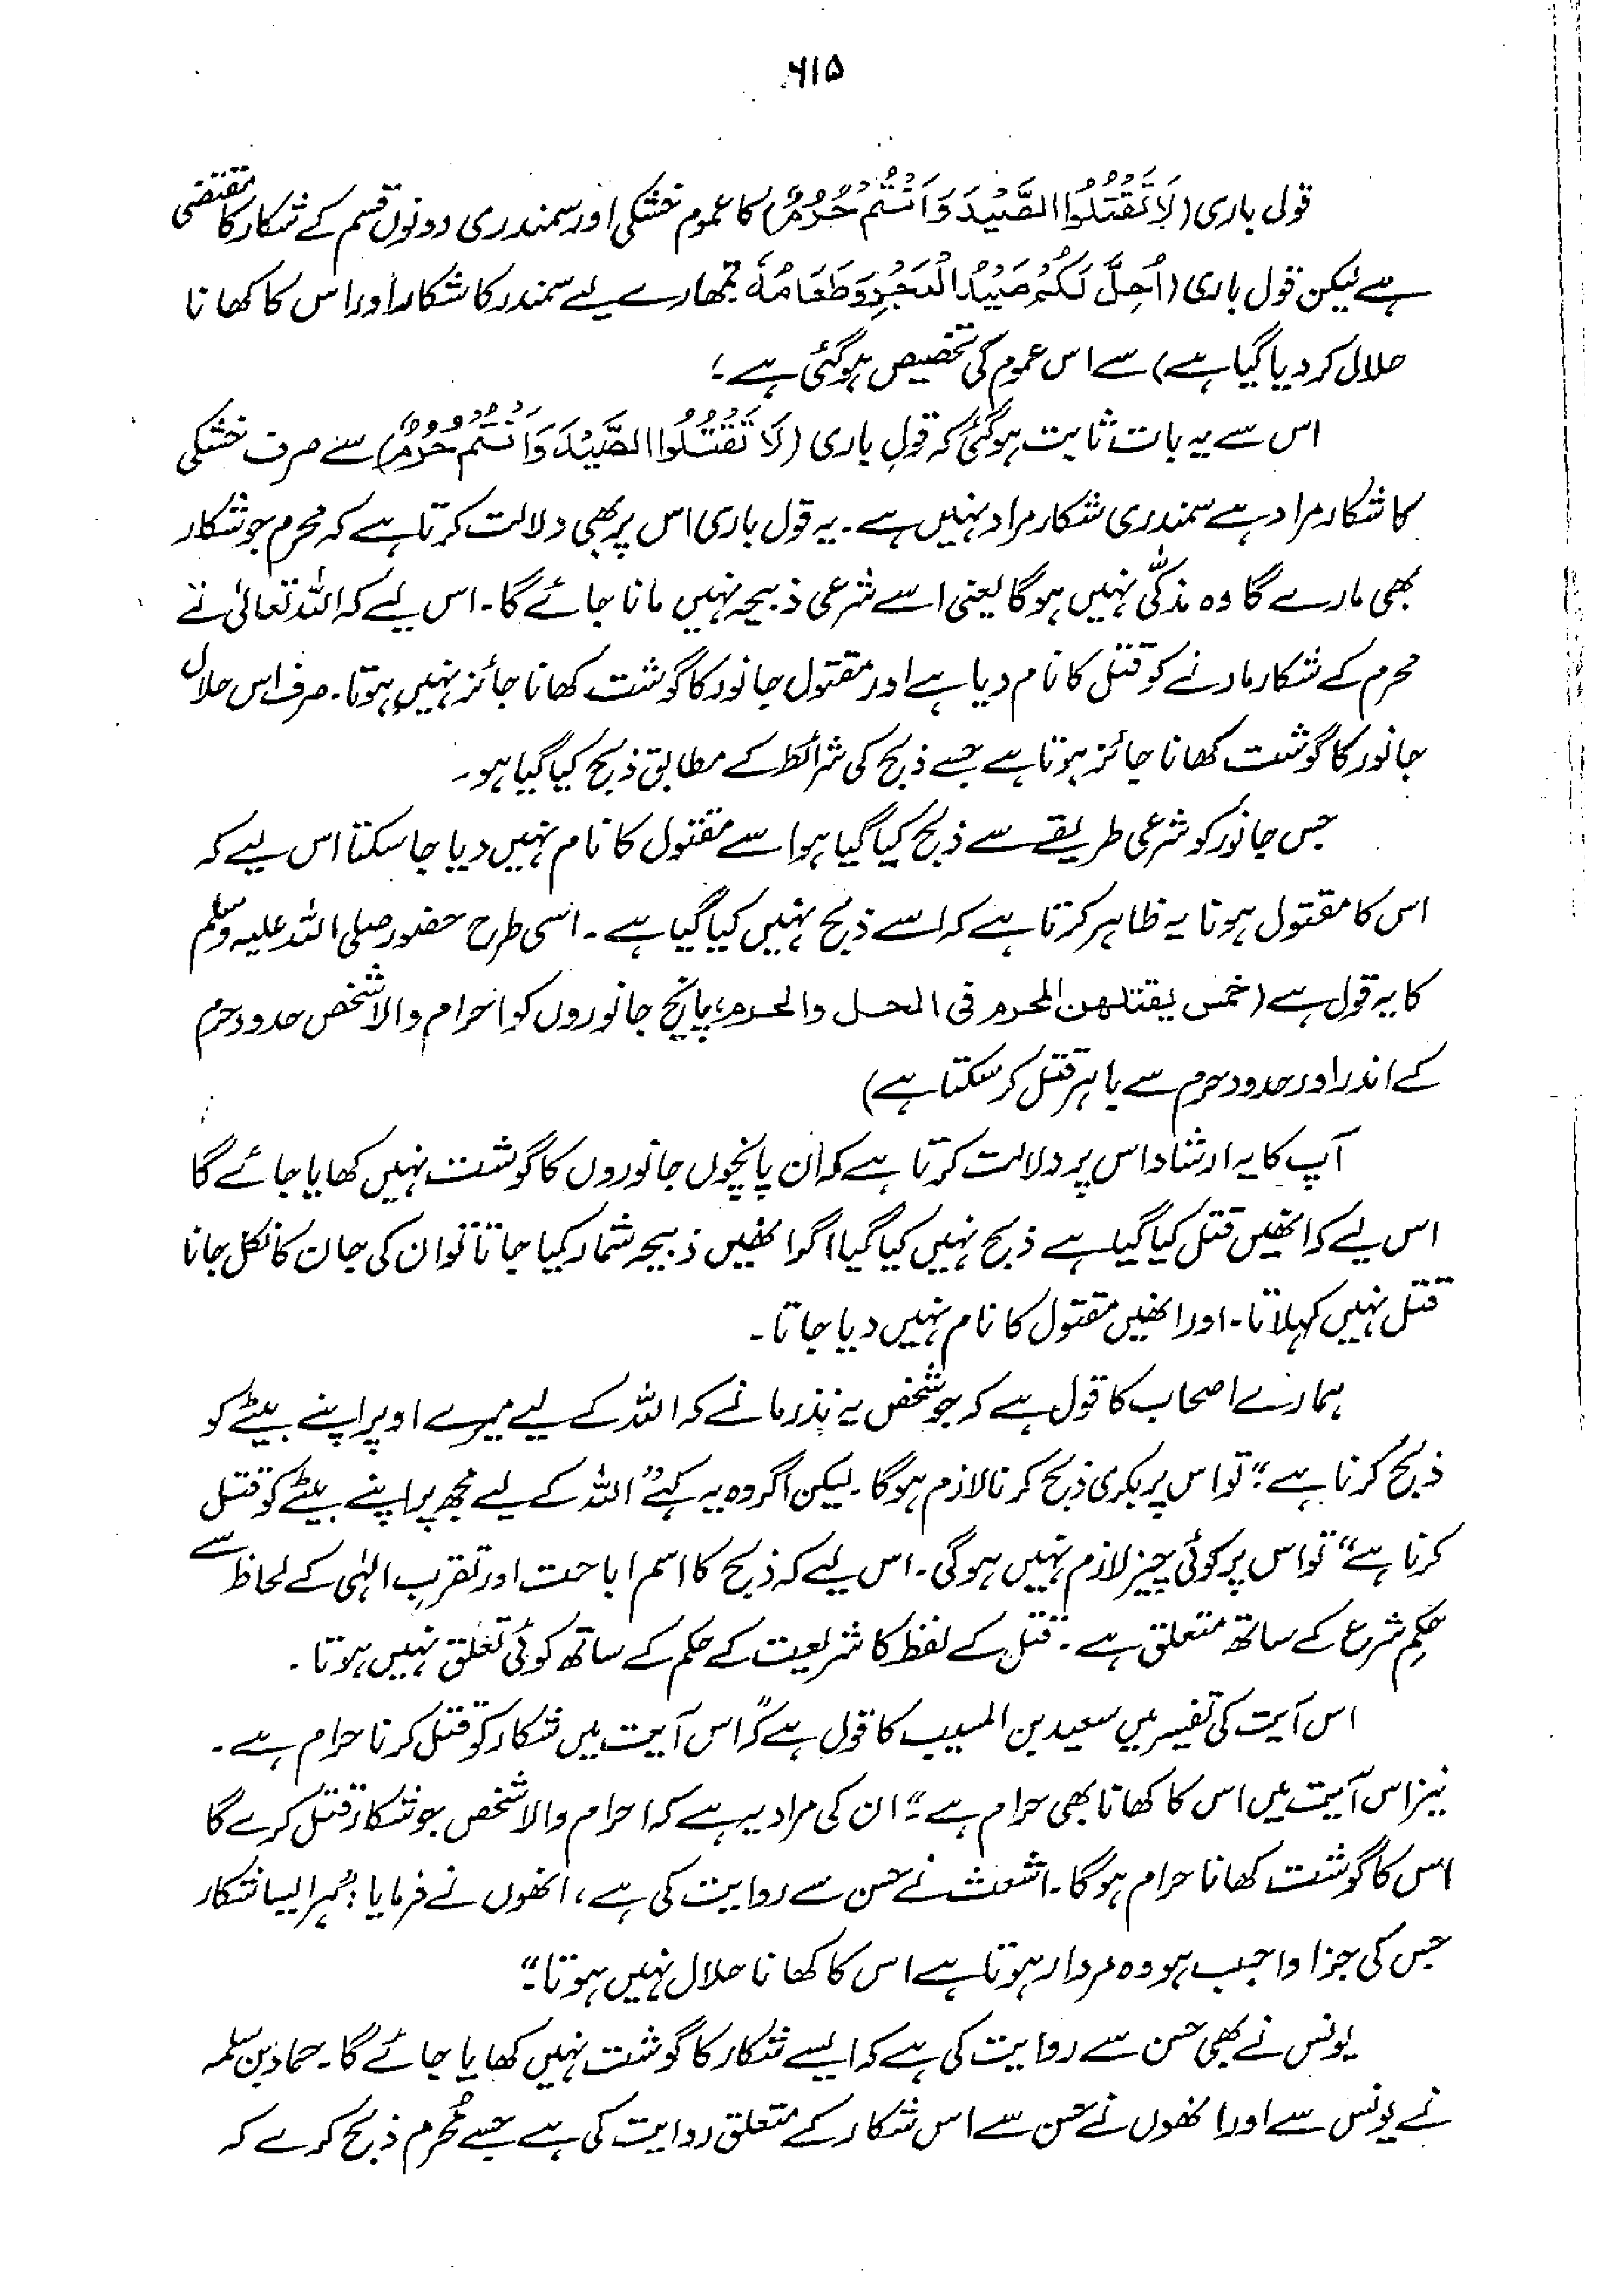 ۶۱۵
قول باری (لَا تَقْتُلُوا الصَّيْدَ وَاَنْتُمْ حُرُمٌ) کا عموم خشکی اور سمندری دونوں قسم کے شکار کا مقتضی
ہے لیکن قول باری (اُحِلَّ لَكُمْ صَيْدُ الْبَحْرِ وَطَعَامُهُ تمھارے لیے سمندر کا شکار اور اس کا کھانا
حلال کر دیا گیا ہے) سے اس عموم کی تخصیص ہو گئی ہے؛
اس سے یہ بات ثابت ہو گئی کہ قولِ باری (لَا تَقْتُلُوا الصَّيْدَ وَاَنْتُمْ حُرُمٌ) سے صرف خشکی
کا شکار مراد ہے سمندری شکار مراد نہیں ہے۔ یہ قول باری اس پر بھی دلالت کرتا ہے کہ محرم جو شکار
بھی مارے گا وہ مذکّٰی نہیں ہوگا یعنی اسے شرعی ذبیحہ نہیں مانا جائے گا۔ اس لیے کہ اللہ تعالیٰ نے
محرم کے شکار مارنے کو قتل کا نام دیا ہے اور مقتول جانور کا گوشت کھانا جائز نہیں ہوتا۔ صرف اس حلال
جانور کا گوشت کھانا جائز ہوتا ہے جسے ذبح کی شرائط کے مطابق ذبح کیا گیا ہو۔
جس جانور کو شرعی طریقے سے ذبح کیا گیا ہو اسے مقتول کا نام نہیں دیا جا سکتا اس لیے کہ
اس کا مقتول ہونا یہ ظاہر کرتا ہے کہ اسے ذبح نہیں کیا گیا ہے۔ اسی طرح حضور صلی اللہ علیہ وسلم
کا یہ قول ہے (خمس یقتلھن المحرم فی الحل والحرم، پانچ جانوروں کو احرام والا شخص حدود حرم
کے اندر اور حدود حرم سے باہر قتل کر سکتا ہے)
آپ کا یہ ارشاد اس پر دلالت کرتا ہے کہ ان پانچوں جانوروں کا گوشت نہیں کھایا جائے گا
اس لیے کہ انھیں قتل کیا گیا ہے ذبح نہیں کیا گیا اگر انھیں ذبیحہ شمار کیا جاتا تو ان کی جان کا نکل جانا
قتل نہیں کہلاتا۔ اور انھیں مقتول کا نام نہیں دیا جاتا۔
ہمارے اصحاب کا قول ہے کہ جو شخص یہ نذر مانے کہ اللہ کے لیے میرے اوپر اپنے بیٹے کو
ذبح کرنا ہے" تو اس پر بکری ذبح کرنا لازم ہوگا۔ لیکن اگر وہ یہ کہے "اللہ کے لیے مجھ پر اپنے بیٹے کو قتل
کرنا ہے" تو اس پر کوئی چیز لازم نہیں ہوگی۔ اس لیے کہ ذبح کا اسم اباحت اور تقربِ الہٰی کے لحاظ سے
حکمِ شرع کے ساتھ متعلق ہے۔ قتل کے لفظ کا شریعت کے حکم کے ساتھ کوئی تعلق نہیں ہوتا۔
اس آیت کی تفسیر میں سعید بن المسیب کا قول ہے "اس آیت میں شکار کو قتل کرنا حرام ہے۔
نیز اس آیت میں اس کا کھانا بھی حرام ہے" ان کی مراد یہ ہے کہ احرام والا شخص جو شکار قتل کرے گا
اس کا گوشت کھانا حرام ہوگا۔ اشعث نے حسن سے روایت کی ہے، انھوں نے فرمایا: "ہر ایسا شکار
جس کی جزا واجب ہو وہ مردار ہوتا ہے اس کا کھانا حلال نہیں ہوتا"
یونس نے بھی حسن سے روایت کی ہے کہ ایسے شکار کا گوشت نہیں کھایا جائے گا۔ حماد بن سلمہ
نے یونس سے اور انھوں نے حسن سے اس شکار کے متعلق روایت کی ہے جسے مُحرم ذبح کرے کہ